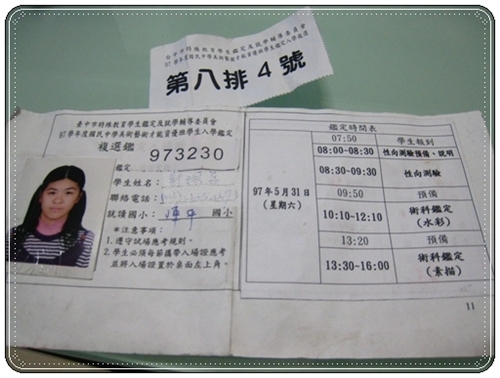 臺中市特殊教育學生鑑定及就學輔導委員會
第八排4號
臺中市特殊教育學生鑑定及就學輔導委員會
97學年度國民中學美術藝術才能資優班學生入學鑑定
複選鑑
973230
鑑定
學生姓名：
聯絡電話：
就讀國小： 國小
※注意事項：
1. 遵守試場應考規則。
2. 學生必須每節攜帶入場證應考
並將入場證置於桌面左上角。
鑑定時間表
97年5月31日
(星期六)
07:50 學生報到
08:00-08:30 性向測驗預備、說明
08:30-09:30 性向測驗
09:50 預備
10:10-12:10 術科鑑定
(水彩)
13:20 預備
13:30-16:00 術科鑑定
(素描)
11